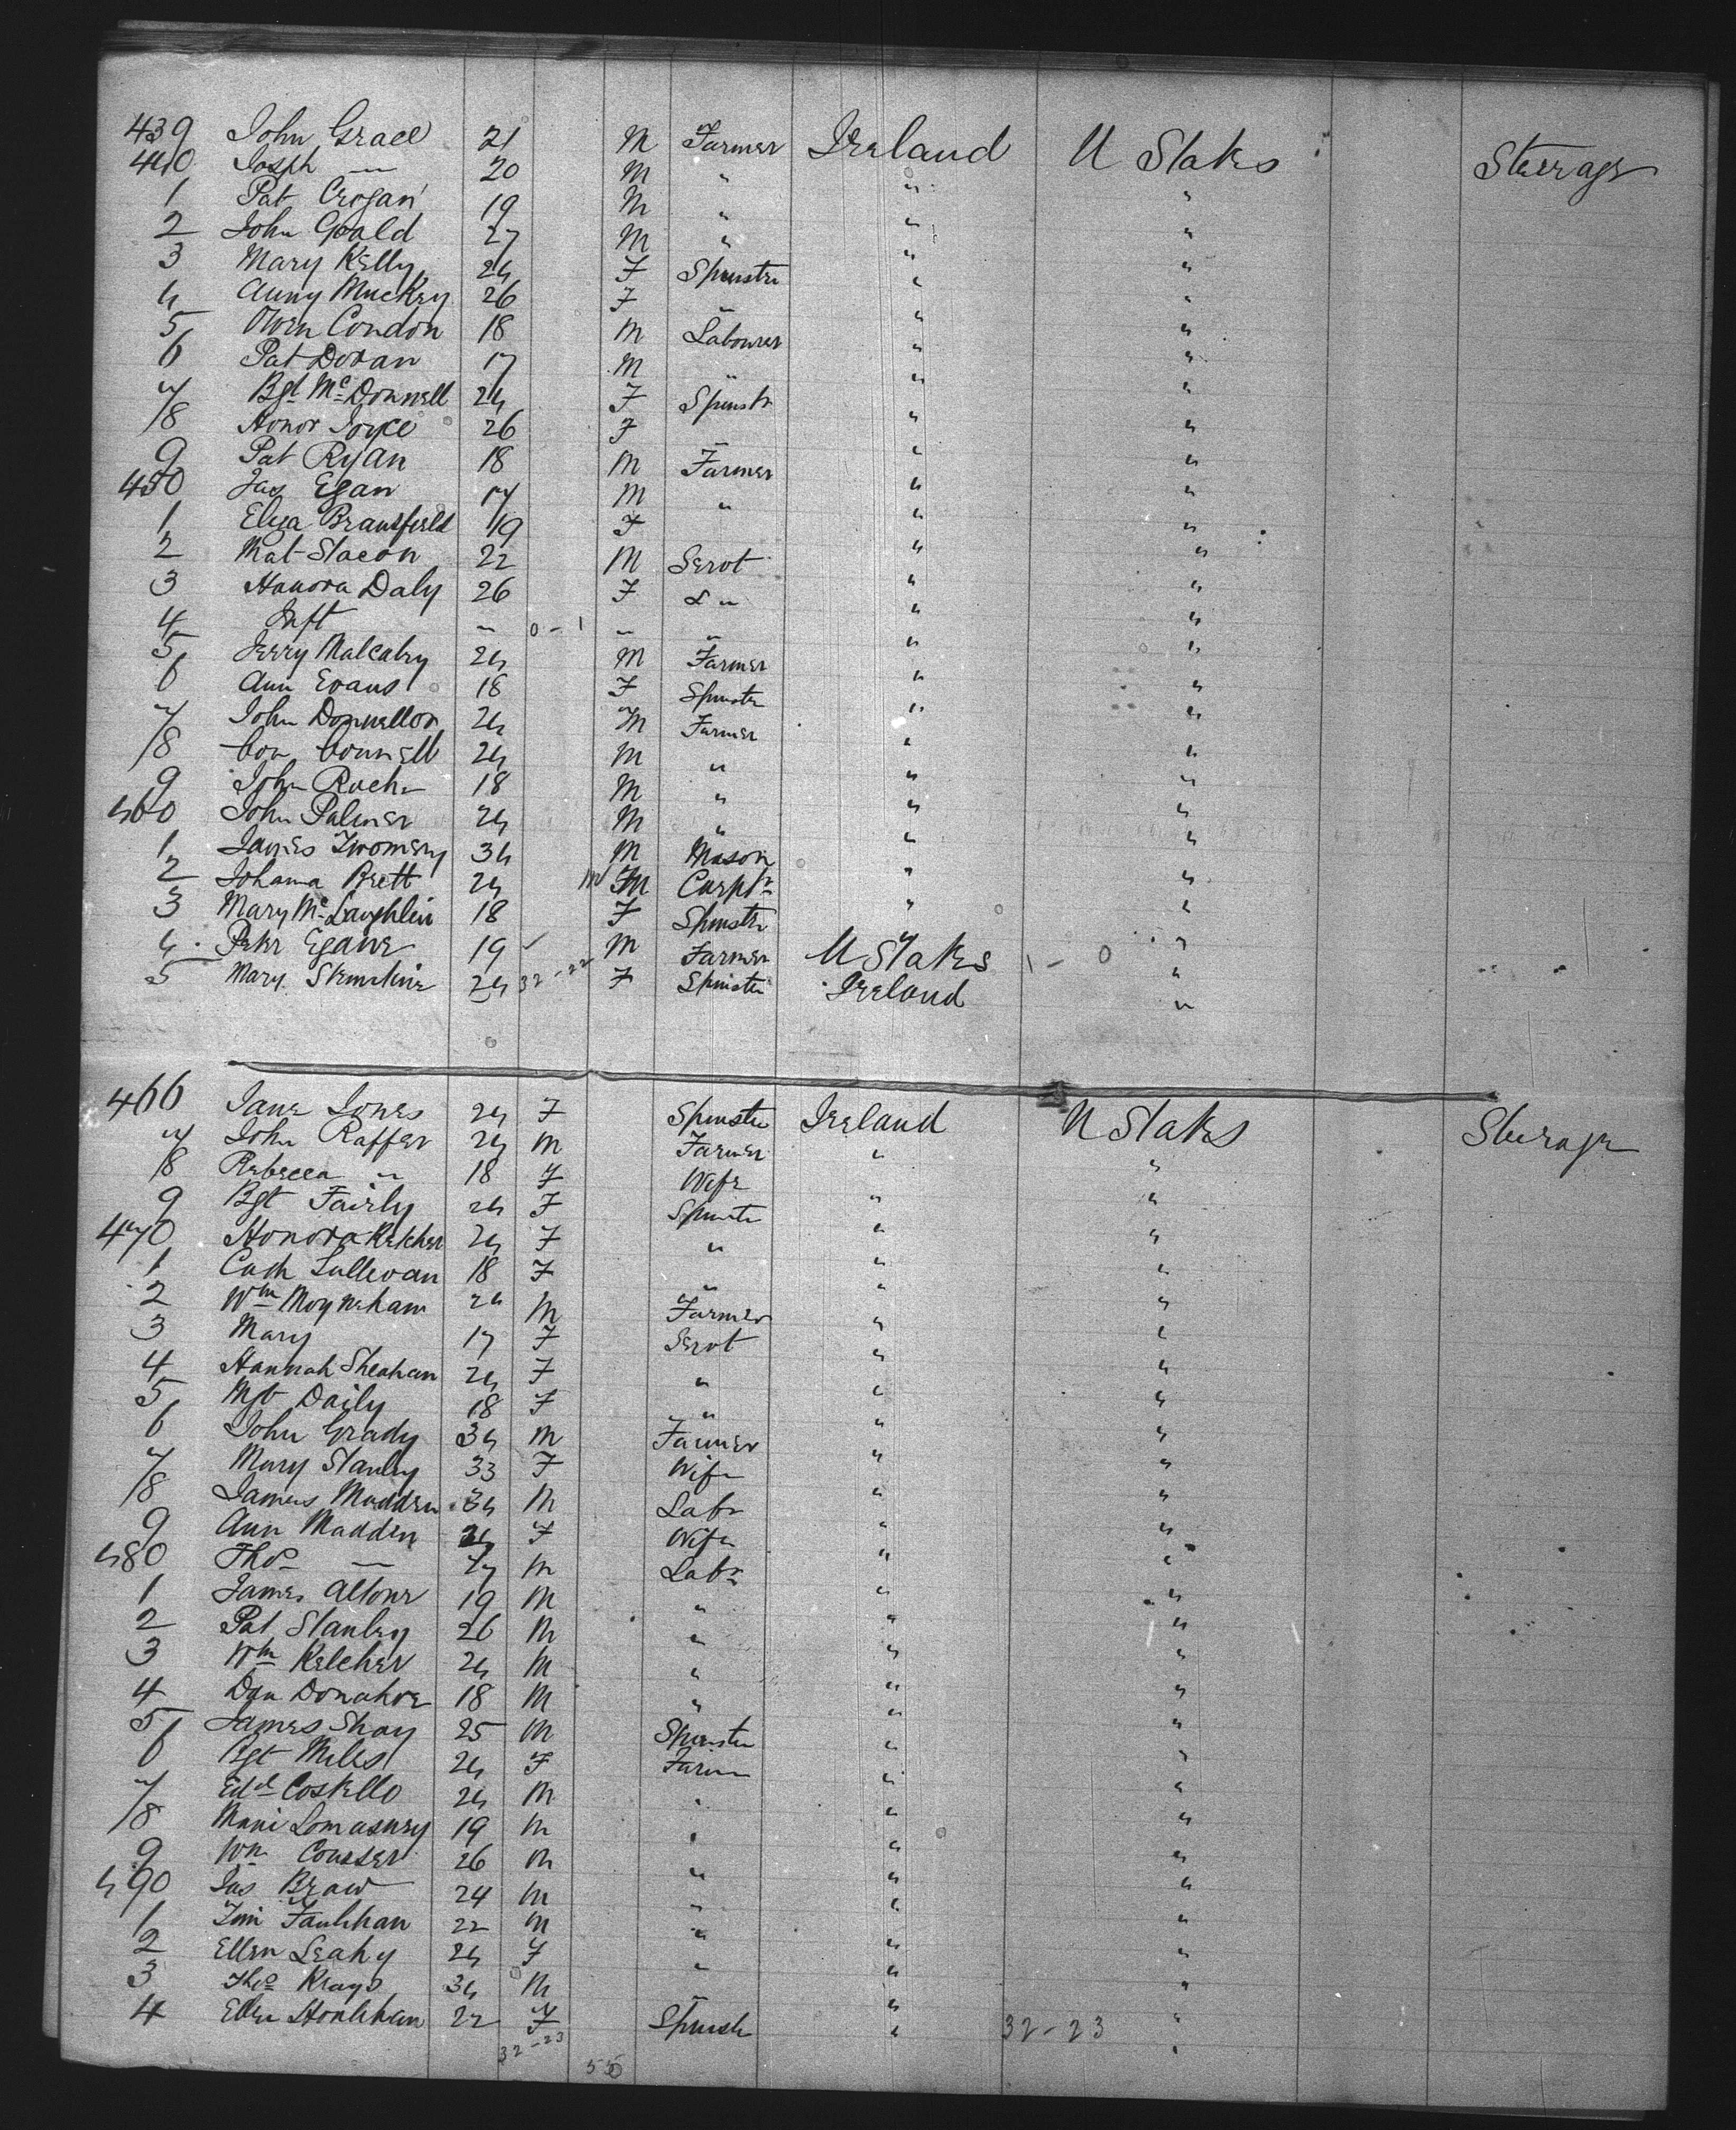 439 John Grace 21 M Farmer Ireland U States Steerage
440 Joseph — 20 M " " "
1 Pat Crogan 19 M " " "
2 John Goald 27 M " " "
3 Mary Kelly 24 F Spinster " "
4 Anny Muckey 26 F " " "
5 Owen Condon 18 M Labourer " "
6 Pat Doran 17 M " " "
7 Bgt McDonnell 24 F Spinstr " "
8 Honor Joyce 26 F " " "
9 Pat Ryan 18 M Farmer " "
450 Jas Egan 17 M " " "
1 Eliza Bransfield 19 F " "
2 Mat Stacon 22 M Servt " "
3 Hanora Daly 26 F " " "
4 Inft " 0-1 " " " "
5 Jerry Malcahy 24 M Farmer " "
6 Ann Evans 18 F Spinster " "
7 John Donnellon 24 M Farmer " "
8 Con Connell 24 M " " "
9 John Roche 18 M " " "
460 John Palmer 24 M " " "
1 James Twomey 34 M Mason " "
2 Johanna Brett 24 M Carptr " "
3 Mary McLaughlin 18 F Spinstr " "
4 Peter Egane 19 M Farmer U States 1-0 "
5 Mary 24 32-22 F Spinster Ireland "
466 Jane Jones 24 F Spinster Ireland U States Steerage
7 John Raffer 24 M Farmer " "
8 Rebecca " 18 F Wife " "
9 Bgt Fairly 24 F Spinster " "
470 Honora Kelcher 24 F " " "
1 Cath Sullivan 18 F " " "
2 Wm Moynaham 24 M Farmer " "
3 Mary 17 F Servt " "
4 Hannah Sheahan 24 F " " "
5 Mgt Daily 18 F " " "
6 John Grady 34 M Farmer " "
7 Mary Stanley 33 F Wife " "
8 James Madden 34 M Labr " "
9 Ann Madden 24 F Wife " "
480 Thos — M Labr " "
1 James Altone 19 M " " "
2 Pat Stanley 26 M " " "
3 Wm Kelcher 24 M " " "
4 Dan Donahoe 18 M " " "
5 James Shay 25 M Spinster " "
6 Bgt Miles 24 F Farm " "
7 Edd Costello 24 M " " "
8 Lomasney 19 M " " "
9 Wm 26 M " " "
490 Jas 24 M " " "
1 Tim 22 M " " "
2 Ellen Leahy 24 F " " "
3 Thos Kreays 34 M " " "
4 Ellen Honlihan 22 F Spinstr " 32-23 "
32-23 55